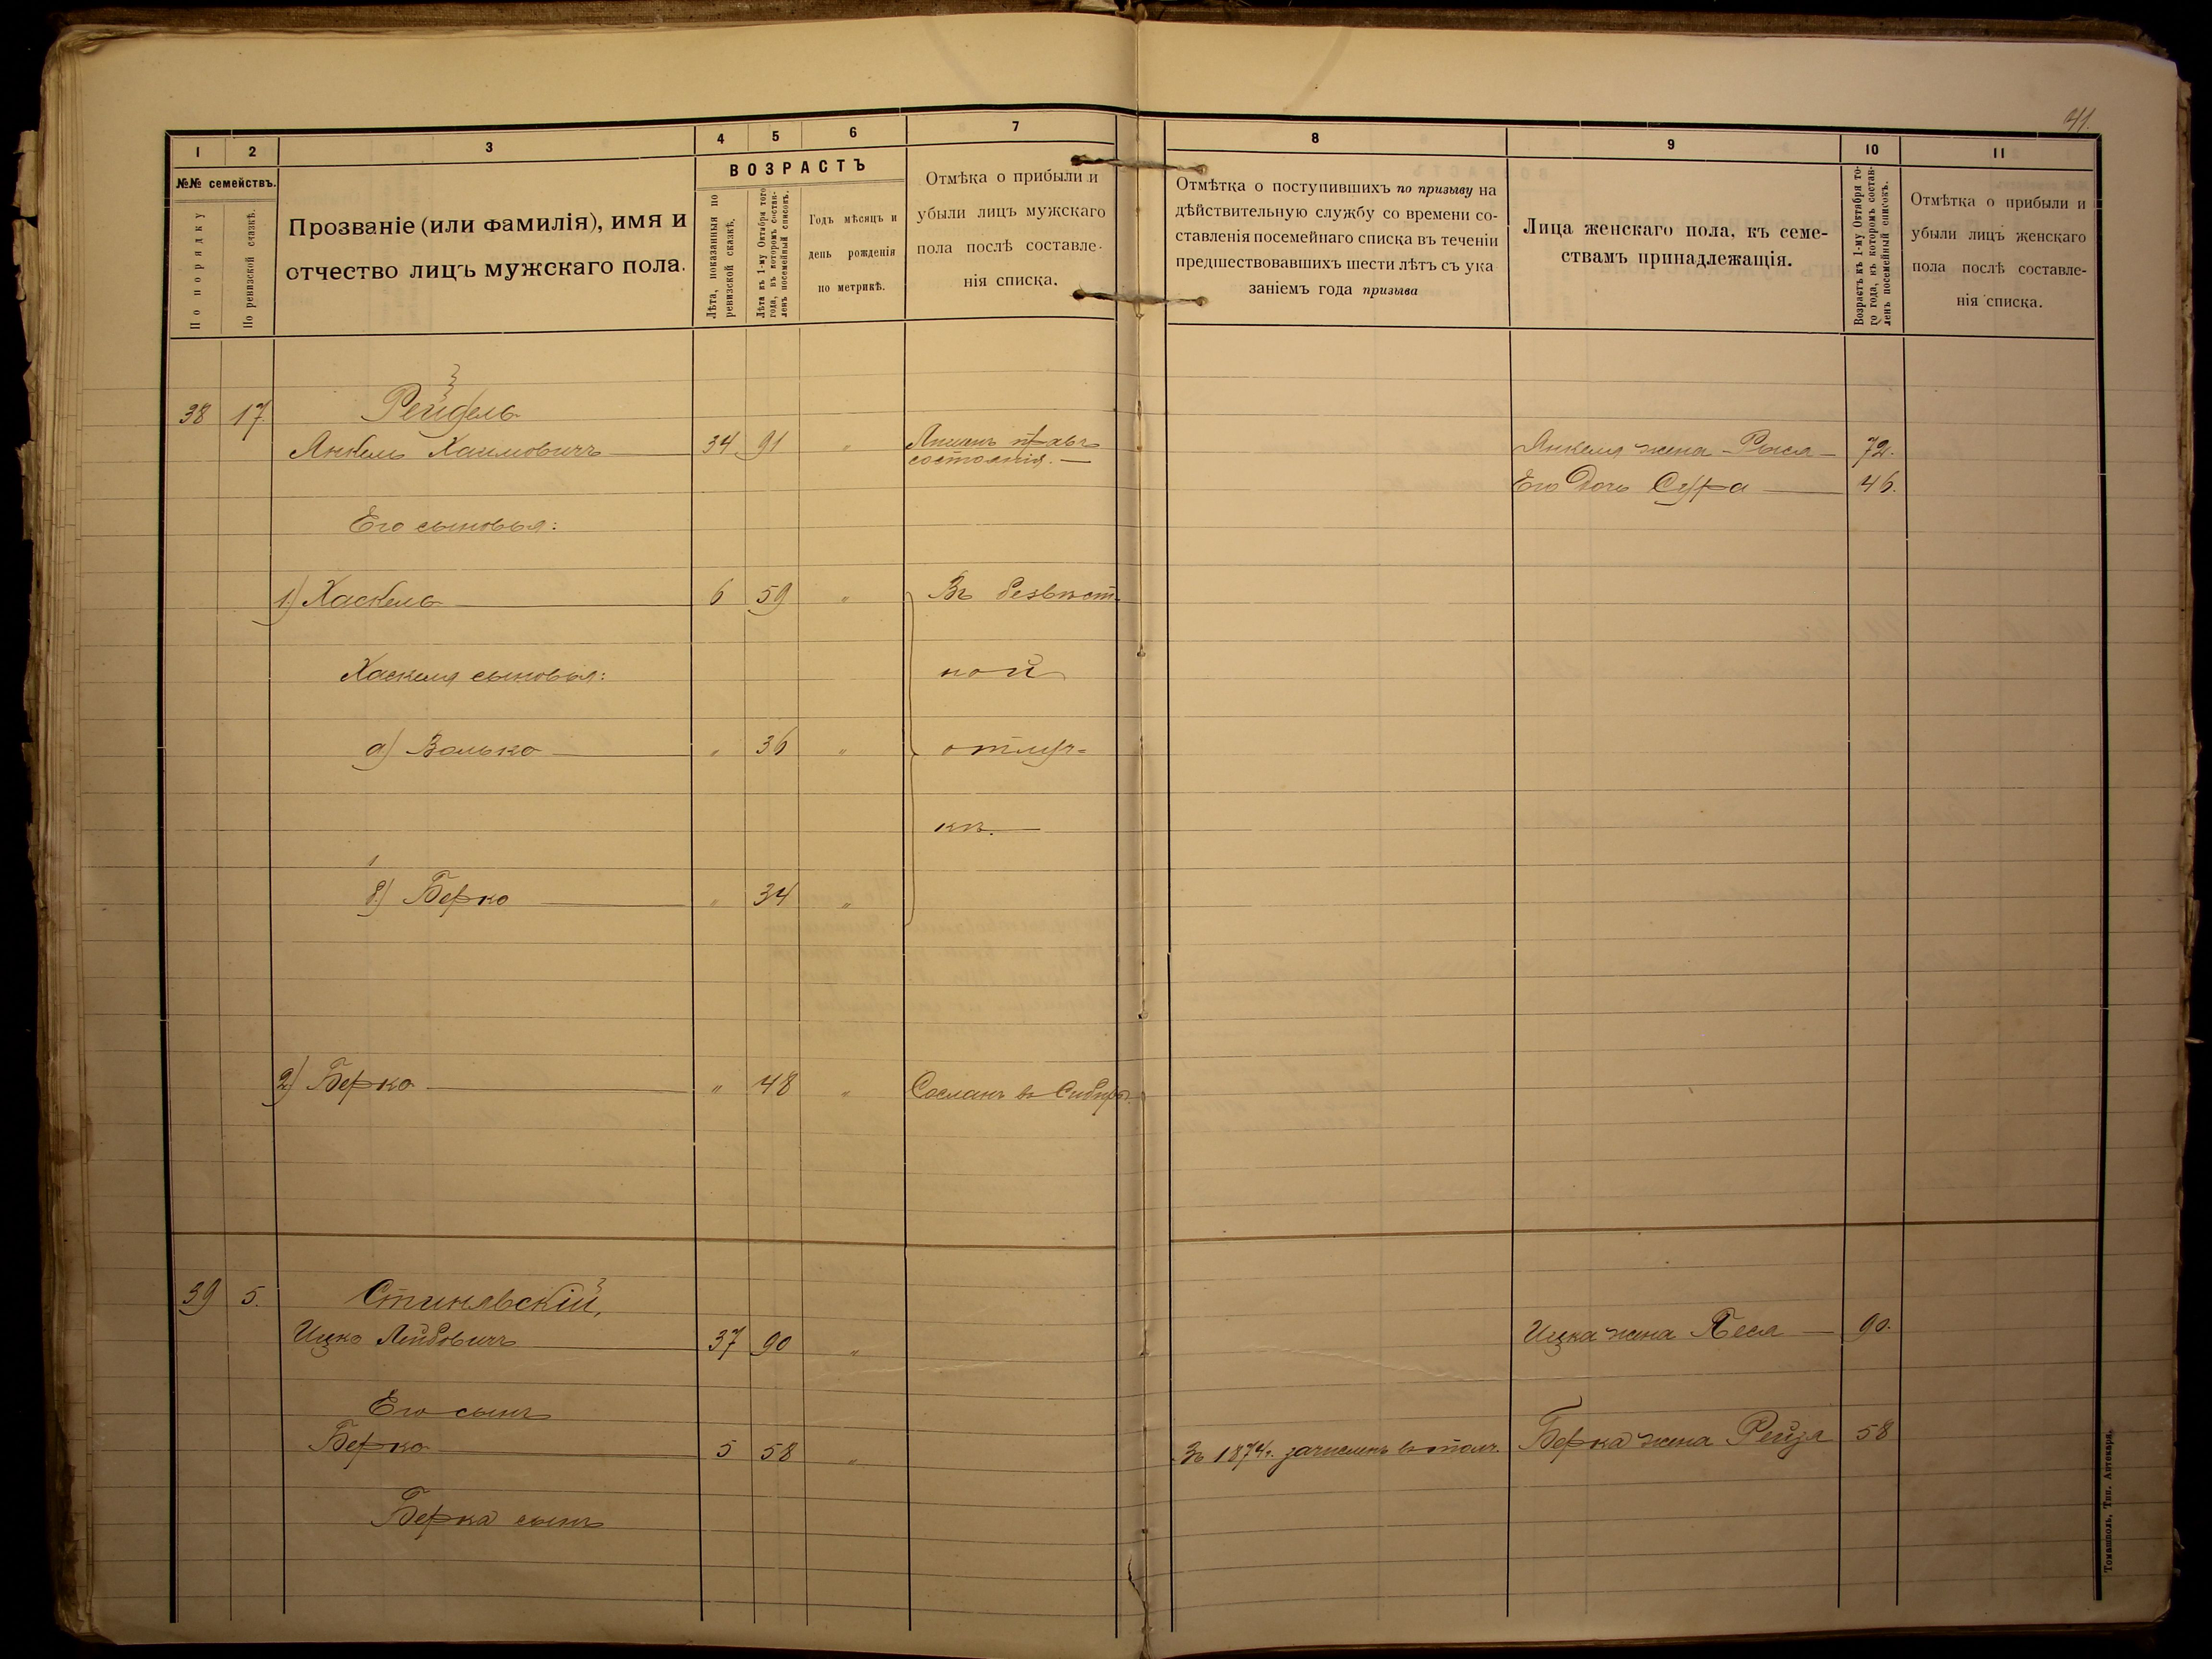 41.
1 2 3 4 5 6 7
№№ семействъ.
По порядку
По ревизской сказкѣ.
Прозваніе (или фамилія), имя и
отчество лицъ мужскаго пола.
ВОЗРАСТЪ
Лѣта, показанныя по
ревизской сказкѣ.
Лѣта къ 1-му Октября того
года, въ которомъ состав-
ленъ посемейный списокъ.
Годъ мѣсяцъ и
день рожденія
по метрикѣ.
Отмѣка о прибыли и
убыли лицъ мужскаго
пола послѣ составле-
нія списка.
8 9 10 11
Отмѣтка о поступившихъ по призыву на
дѣйствительную службу со времени со-
ставленія посемейнаго списка въ теченіи
предшествовавшихъ шести лѣтъ съ ука
заніемъ года призыва
Лица женскаго пола, къ семе-
ствамъ принадлежащія.
Возрастъ къ 1-му Октября то-
го года, къ которомъ состав-
ленъ посемейный списокъ.
Отмѣтка о прибыли и
убыли лицъ женскаго
пола послѣ составле-
нія списка.
38 17. Рейдель
Янкель Хаимовичъ 34 91 " Лишенъ правъ
состоянія.
Янкеля жена Рыся 72.
Его дочь Сура 46.
Его сыновья:
1) Хаскель 6 59 " Въ безвѣст-
Хаскеля сыновья: ной
а) Волько " 36 " отлуч=
кѣ.
б) Берко " 34 "
2) Берко " 48 " Сосланъ въ Сибирь.
39 5. Стинявскій,
Ицко Лейбовичъ 37 90 " Ицка жена Песя 90.
Его сынъ
Берко 5 58 " Въ 1874г. зачисленъ въ ополч. Берка жена Рейзя 58
Берка сынъ
Томашполь, Тип. Аптекаря.